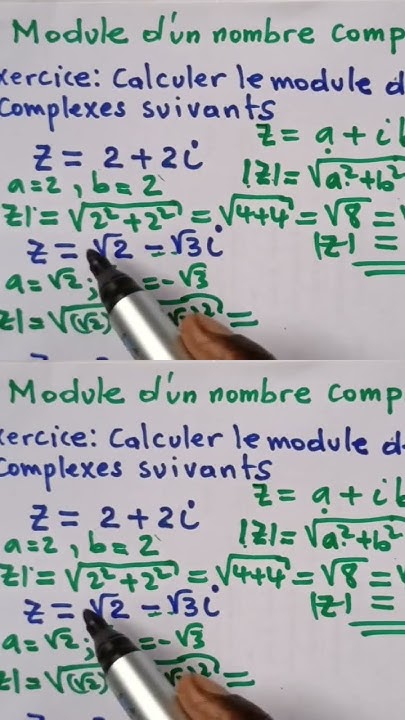 Module d'un nombre comp
xercice: Calculer le module d
Complexes suivants
z = a + ib
z = 2 + 2i
|z| = √a² + b²
a = 2 , b = 2
z| = √2² + 2² = √4+4 = √8 =
z = √2 - √3i
|z| =
a = √2; = -√3
z| = √(√2) )² =
Module d'un nombre comp
xercice: Calculer le module d
Complexes suivants
z = a + ib
z = 2 + 2i
|z| = √a² + b²
a = 2 , b = 2
z| = √2² + 2² = √4+4 = √8 =
z = √2 - √3i
|z| =
a = √2; = -√3
z| = √(√2) )² =